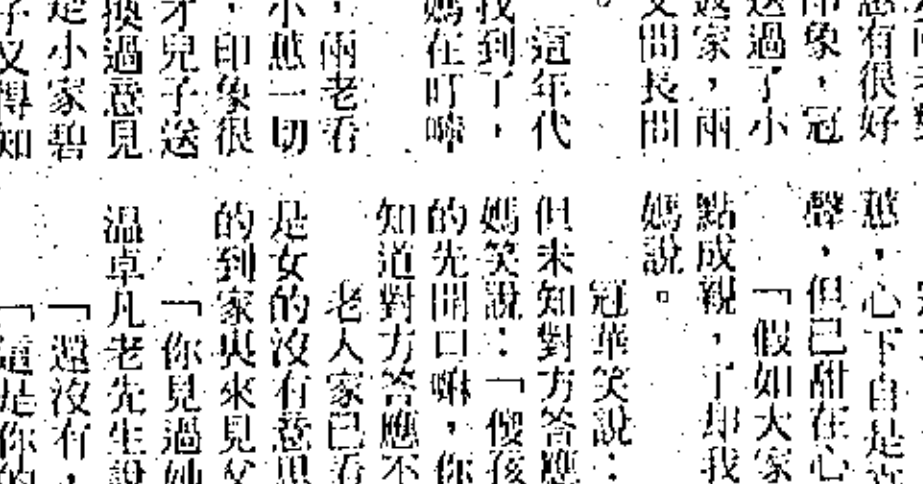 有很好
印象，冠
送過了小
家，兩
問長問
。
這年代
找到了，
媽在叮嚀
，兩老看
小蕙一切
，印象很
才兒子送
換過意見
是小家碧
子又得知
蕙，心下自是
聲，但已甜在心
「假如大家
點成親，了却我
媽說。
冠華笑說：
但未知對方答應
媽笑說：「傻孩
的先開口嘛，你
知道對方答應不
老人家已看
是女的沒有意思
的到家與來見父
「你見過她
温卓凡老先生說
「還沒有，
「這是你的